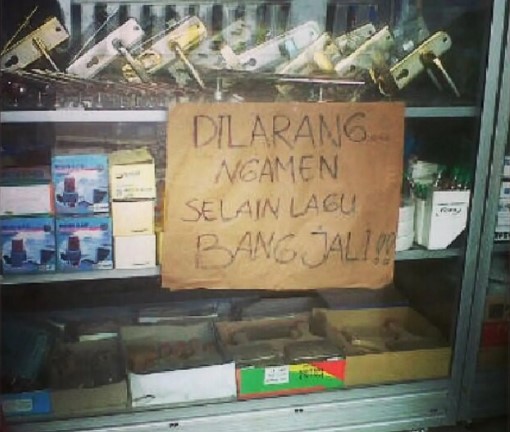 DILARANG...
NGAMEN
SELAIN LAGU
BANG JALI!!!